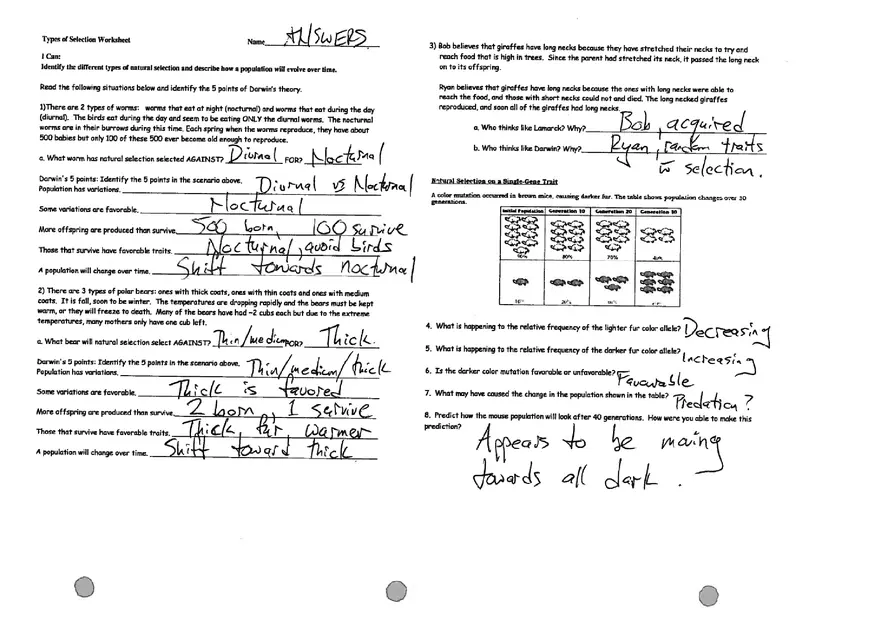 Types of Selection Worksheet
Name ANSWERS
I Can:
Identify the different types of natural selection and describe how a population will evolve over time.
Read the following situations below and identify the 5 points of Darwin's theory.
1)There are 2 types of worms: worms that eat at night (nocturnal) and worms that eat during the day
(diurnal). The birds eat during the day and seem to be eating ONLY the diurnal worms. The nocturnal
worms are in their burrows during this time. Each spring when the worms reproduce, they have about
500 babies but only 100 of these 500 ever become old enough to reproduce.
a. What worm has natural selection selected AGAINST? Diurnal FOR? Nocturnal
Darwin's 5 points: Identify the 5 points in the scenario above.
Population has variations. Diurnal vs Nocturnal
Some variations are favorable. Nocturnal
More offspring are produced than survive. 500 born, 100 survive
Those that survive have favorable traits. Nocturnal, avoid birds
A population will change over time. Shift towards nocturnal
2) There are 3 types of polar bears: ones with thick coats, ones with thin coats and ones with medium
coats. It is fall, soon to be winter. The temperatures are dropping rapidly and the bears must be kept
warm, or they will freeze to death. Many of the bears have had ~2 cubs each but due to the extreme
temperatures, many mothers only have one cub left.
a. What bear will natural selection select AGAINST? Thin/medium FOR? Thick.
Darwin's 5 points: Identify the 5 points in the scenario above.
Population has variations. Thin/medium/thick
Some variations are favorable. Thick is favored
More offspring are produced than survive. 2 born, 1 survive
Those that survive have favorable traits. Thick fur warmer
A population will change over time. Shift toward thick
3) Bob believes that giraffes have long necks because they have stretched their necks to try and
reach food that is high in trees. Since the parent had stretched its neck, it passed the long neck
on to its offspring.
Ryan believes that giraffes have long necks because the ones with long necks were able to
reach the food, and those with short necks could not and died. The long necked giraffes
reproduced, and soon all of the giraffes had long necks.
a. Who thinks like Lamarck? Why? Bob, acquired
b. Who thinks like Darwin? Why? Ryan, random traits
selection.
Natural Selection on a Single-Gene Trait
A color mutation occurred in brown mice, causing darker fur. The table shows population changes over 30
generations.
Initial Population Generation 10 Generation 20 Generation 30
90% 80% 70% 40%
10% 20%
4. What is happening to the relative frequency of the lighter fur color allele? Decreasing
5. What is happening to the relative frequency of the darker fur color allele? Increasing
6. Is the darker color mutation favorable or unfavorable? Favourable
7. What may have caused the change in the population shown in the table? Predation?
8. Predict how the mouse population will look after 40 generations. How were you able to make this
prediction?
Appears to be moving
towards all dark.